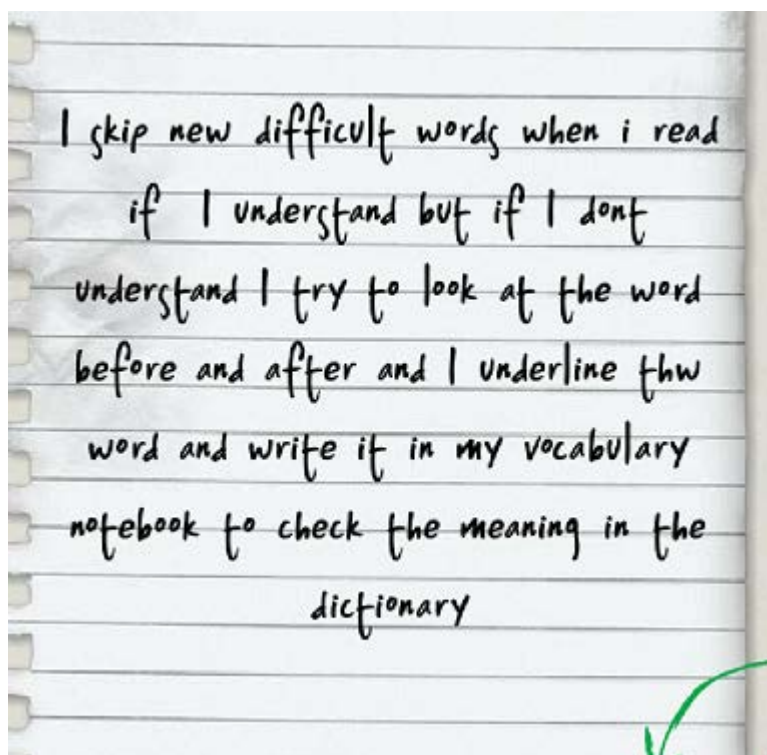 I skip new difficult words when i read
if I understand but if I dont
understand I try to look at the word
before and after and I underline thw
word and write it in my vocabulary
notebook to check the meaning in the
dictionary